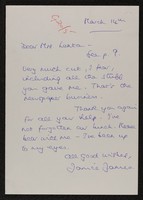 March 16th
Dear Mrs Lanka -
very much cut, I fear,
including all the stuff
you gave me. That's the
newspaper business.
Thank you again
for all your help. I've
not forgotten our lunch. Please
bear with me - I'm
to my eyes.
All good wishes,